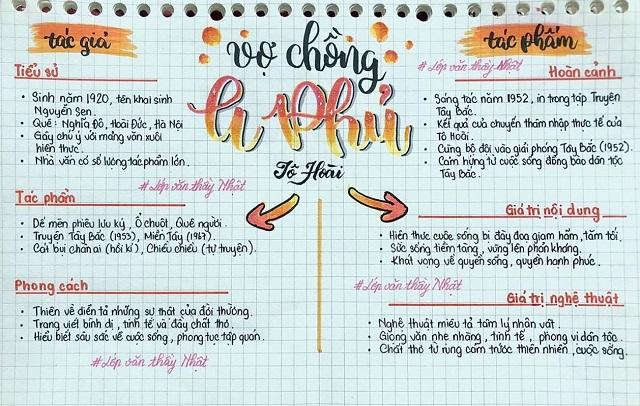 tác giả
Tiểu sử
Sinh năm 1920, tên khai sinh
Nguyễn Sen.
Quê: Nghĩa Đô, Hoài Đức, Hà Nội
Gây chú ý với mảng văn xuôi
hiện thực.
Nhà văn có số lượng tác phẩm lớn.
#Lớp văn thầy Nhật
Tác phẩm
Dế mèn phiêu lưu ký, Ổ chuột, Quê người.
Truyện Tây Bắc (1953), Miền Tây (1967).
Cát bụi chân ai (hồi kí), Chiều chiều (tự truyện).
Phong cách
Thiên về diễn tả những sự thật của đời thường.
Trang viết bình dị, tinh tế và đầy chất thơ.
Hiểu biết sâu sắc về cuộc sống, phong tục tập quán.
#Lớp văn thầy Nhật
vợ chồng
a Phủ
Tô Hoài
tác phẩm
#Lớp văn thầy Nhật
Hoàn cảnh
Sáng tác năm 1952, in trong tập Truyện
Tây Bắc.
Kết quả của chuyến thâm nhập thực tế của
Tô Hoài.
Cùng bộ đội vào giải phóng Tây Bắc (1952).
Cảm hứng từ cuộc sống đồng bào dân tộc
Tây Bắc.
Giá trị nội dung
Hiện thực cuộc sống bị đày đọa giam hãm, tăm tối.
Sức sống tiềm tàng, vùng lên phản kháng.
Khát vọng về quyền sống, quyền hạnh phúc.
#Lớp văn thầy Nhật
Giá trị nghệ thuật
Nghệ thuật miêu tả tâm lý nhân vật.
Giọng văn nhẹ nhàng, tinh tế, phong vị dân tộc.
Chất thơ từ rung cảm trước thiên nhiên, cuộc sống.